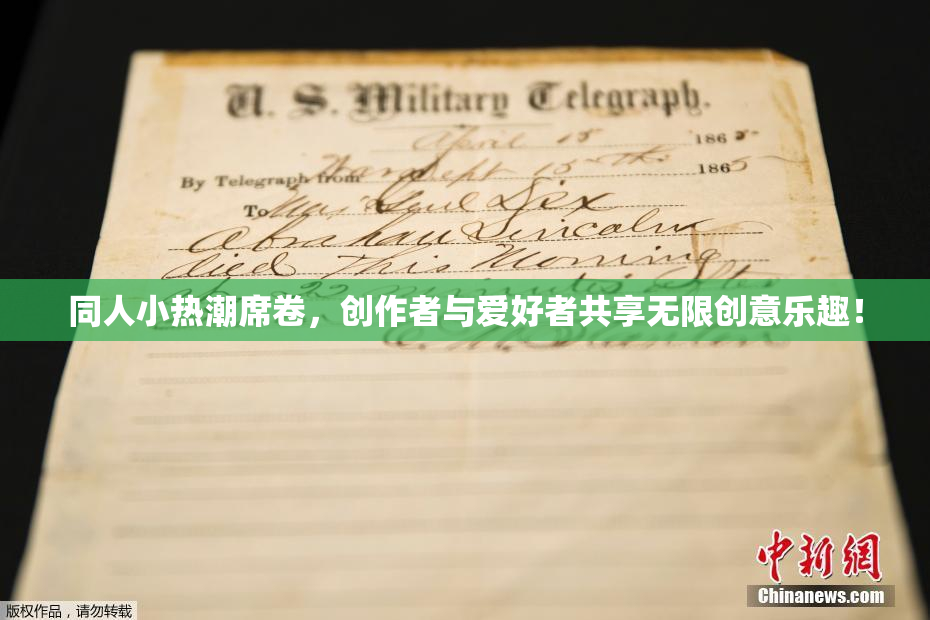 U. S. Military Telegraph.
April 15 1865
By Telegraph from War Dept 15th 1865
To Maj Genl Dix
Abraham Lincoln
died This Morning
22 minutes after
同人小热潮席卷，创作者与爱好者共享无限创意乐趣！
E. M. Stanton
中新网
Chinanews.com
版权作品，请勿转载